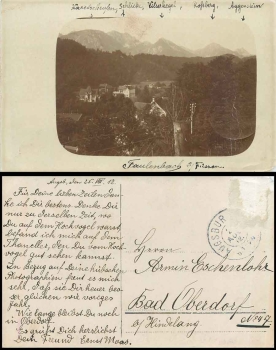 Schlicke, Vilserkegel, Roßberg, Aggenstein
Faulenbach b/ Füssen
Augsb., den 25. VII. 12.
Für Deine lieben Zeilen Dan-
ke ich Dir bestens. Denke Dir
nur zu derselben Zeit, wo
Du auf dem Hochvogel warst
befand ich mich auf dem
Thaneller, den Du vom Hoch-
vogel gut sehen kannst.
In Bezug auf Deine hübschen
Photografien freut es mich
sehr, daß sie Dir heuer bes-
ser glücken, wie voriges
Jahr.
Wie lange bleibst Du noch
in Oberdorf
Es grüßt Dich herzlichst
Dein Freund Ernst Maas.
AUGSBURG
Herrn
Armin Eschenlohr
Bad Oberdorf
b/ Hindelang